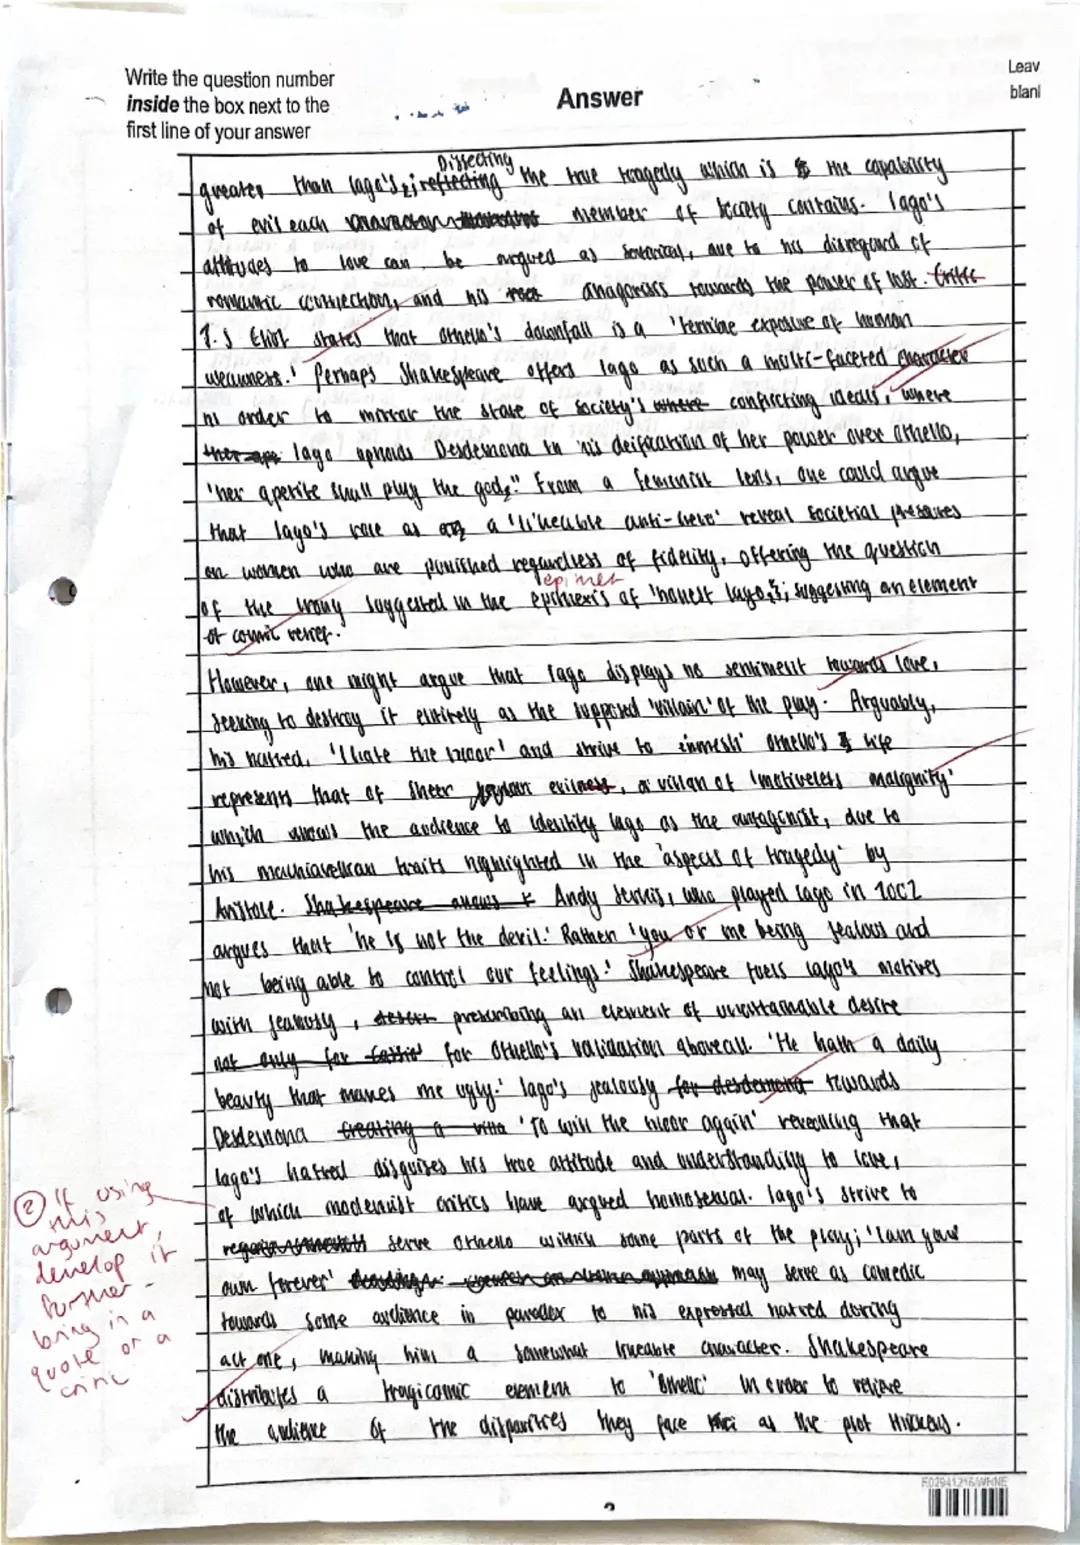 Write the question number
inside the box next to the
first line of your answer
Answer
Leav
blanl
Dissecting
greater than Iago's, reflecting the true tragedy which is the capability
of evil each member of society contains. Iago's
attitudes to love can be argued as satirical, due to his disregard of
romantic connection, and his towards the power of lust. Critic
T.S Eliot states that Othello's downfall is a 'terrible exposure of human
weakness.' Perhaps Shakespeare offers Iago as such a multi-faceted character
in order to mirror the state of society's where conflicting ideals, where
Iago upholds Desdemona in his deification of her power over Othello,
'her apetite shall play the god.' From a feminist lens, one could argue
that Iago's role as a 'likeable anti-hero' reveal societial pressures
on women who are punished regardless of fidelity. Offering the question
epithet
of the irony suggested in the of 'honest Iago'; suggesting an element
of comic relief.
However, one might argue that Iago displays no sentiment towards love,
seeking to destroy it entirely as the supposed 'villain' of the play. Arguably,
his hatred, 'I hate the moor' and strive to 'enmesh' Othello's life
represents that of sheer evilness, a villan of 'motiveless malignity'
which allows the audience to identify Iago as the antagonist, due to
his machiavellian traits highlighted in the 'aspects of tragedy' by
Aristotle. Shakespeare allows Andy Serkis, who played Iago in 2002
argues that 'he is not the devil.' Rather 'you or me being jealous and
not being able to control our feelings.' Shakespeare fuels Iago's motives
with jealousy, an element of unattainable desire
not only for Cassio for Othello's validation aboveall. 'He hath a daily
beauty that makes me ugly.' Iago's jealously for desdemona towards
Desdemona creating a villa 'To win the moor again' revealing that
Iago's hatred disguises his true attitude and understanding to love,
of which modernist critics have argued homosexual. Iago's strive to
serve Othello within some parts of the play; 'I am your
own forever' may serve as comedic
towards some audience in paradox to his expressed hatred during
act one, making him a somewhat likeable character. Shakespeare
distributes a tragicomic element to 'Othello' in order to relieve
the audience of the disparities they face as the plot thickens.
② If using
this
argument,
develop it
further -
bring in a
quote or a
critic